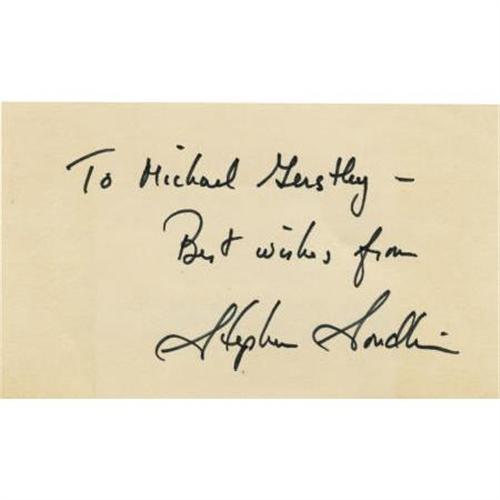 To Michael Gerstley –
Best wishes from
Stephen Sondheim